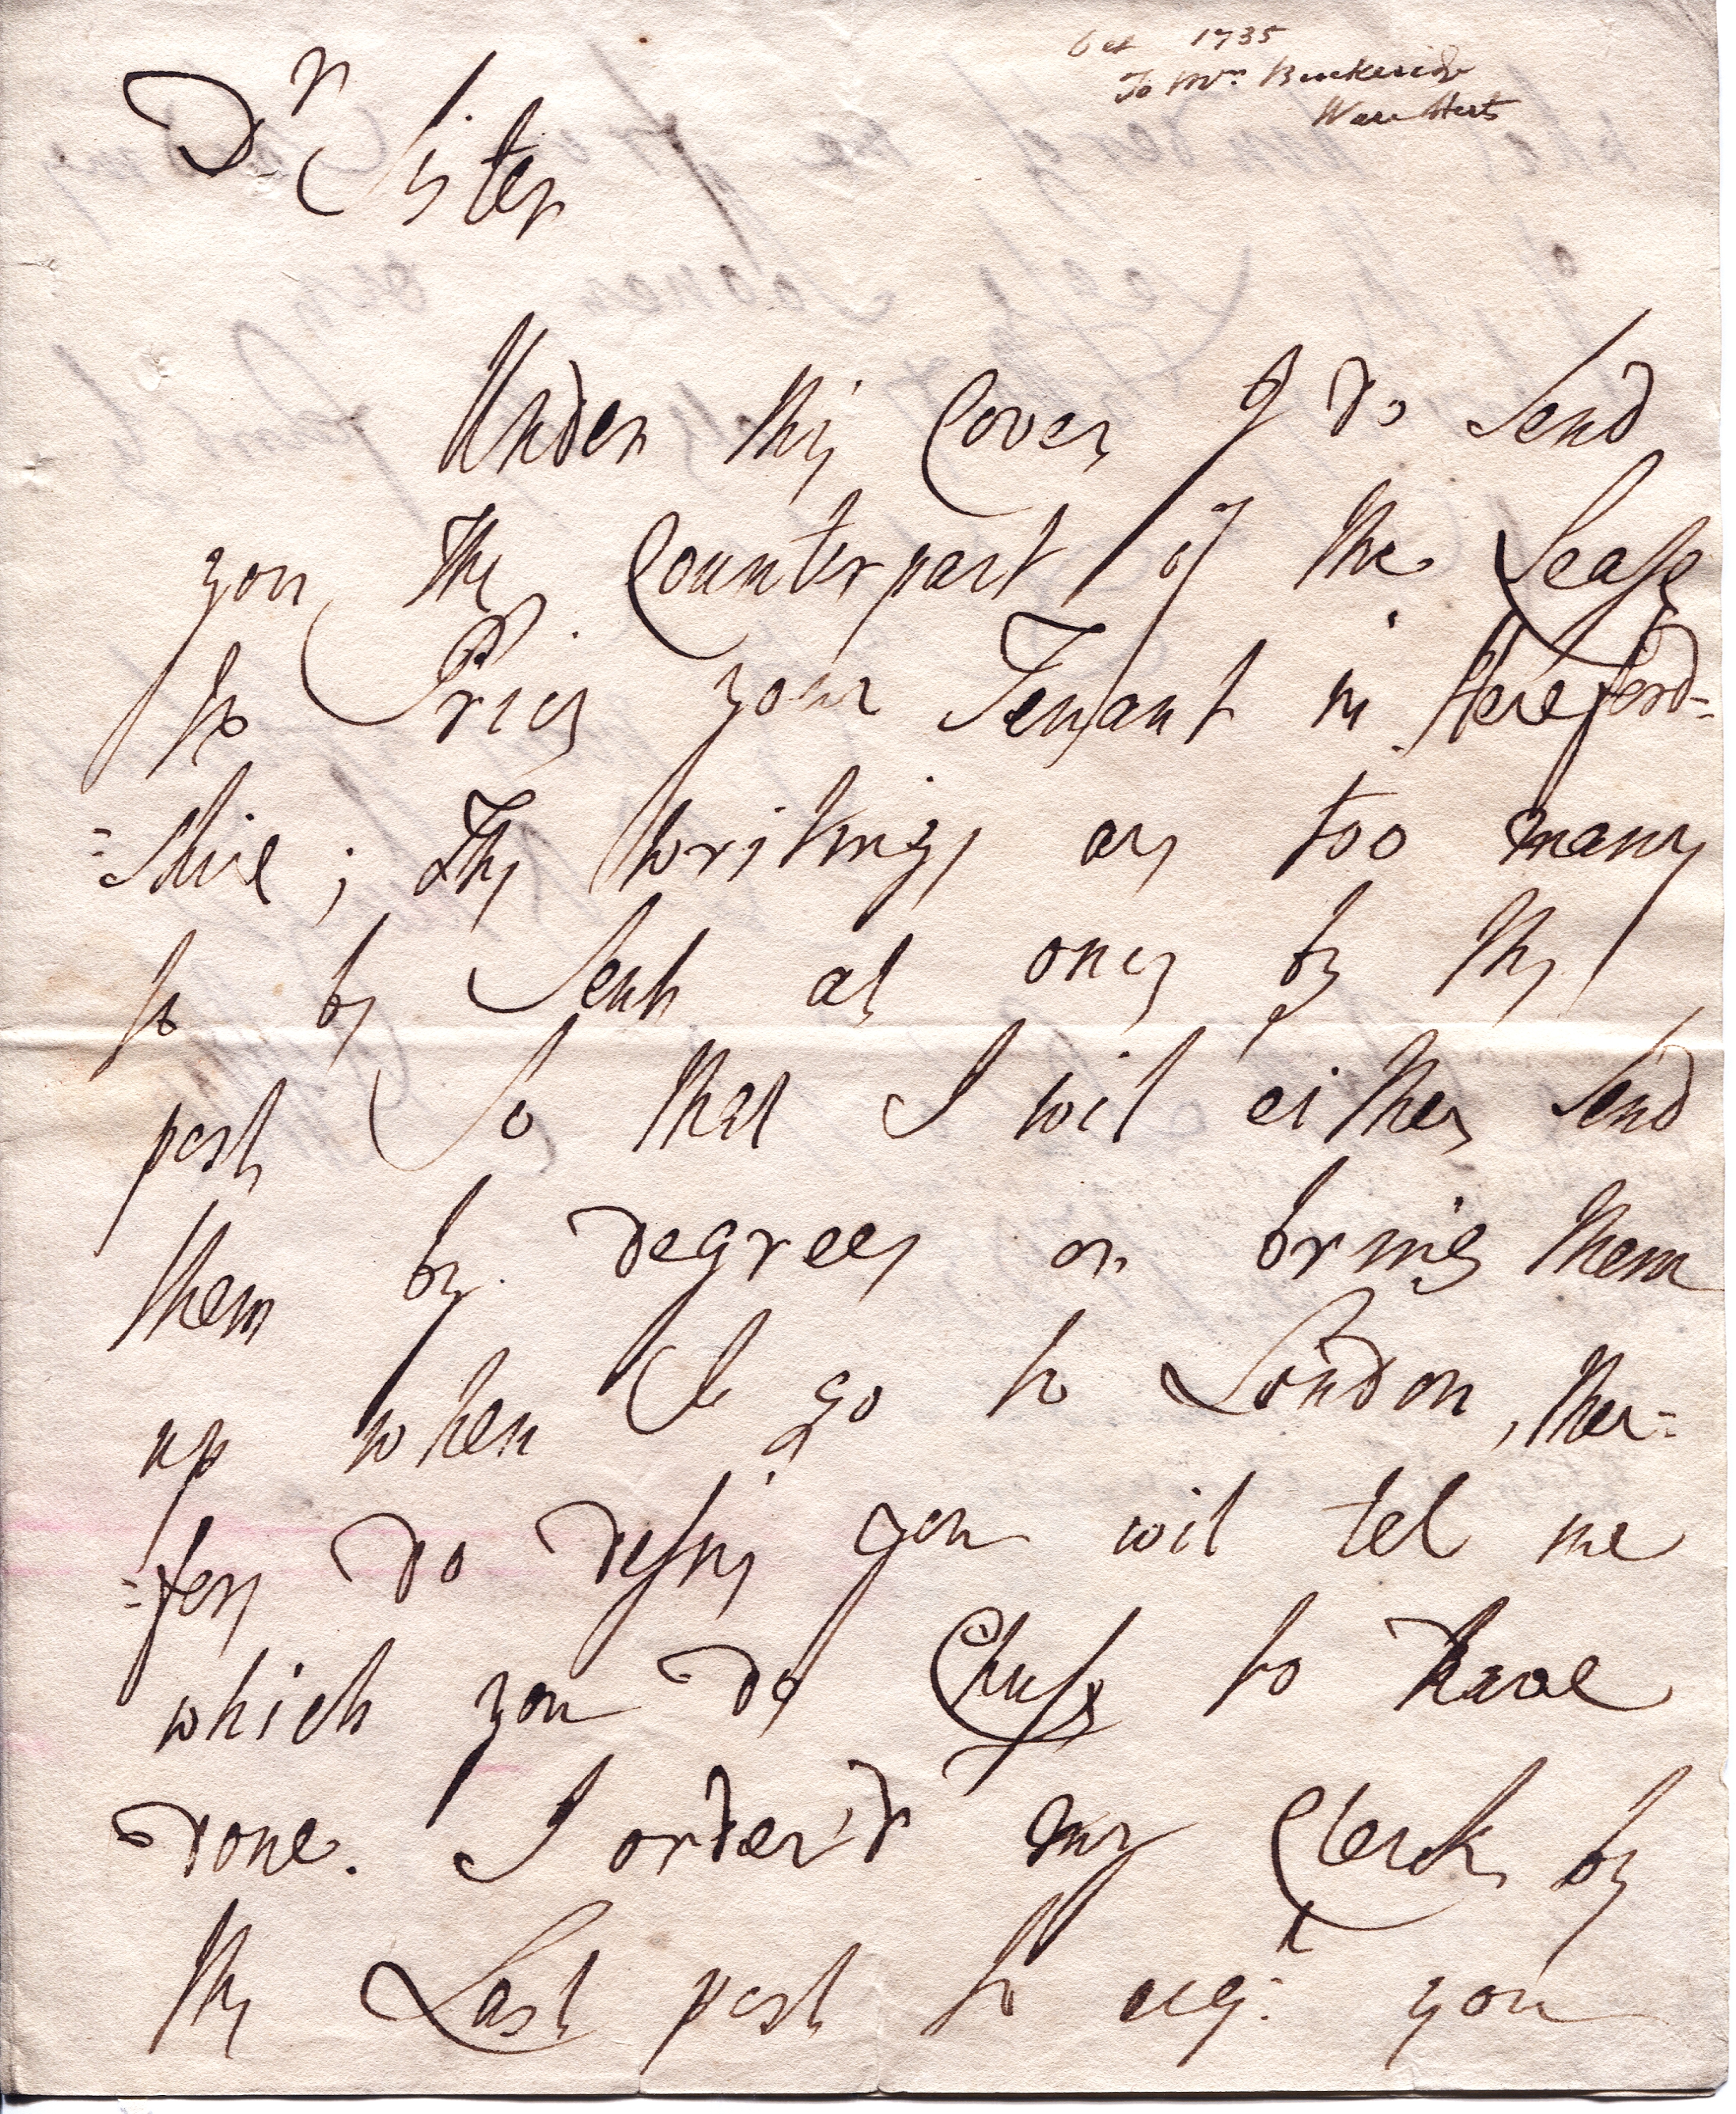 Oct 1735
To Mrs.
Ware Herts
Dr Sister
Under this Cover I do Send
you the Counterpart of the Lease
to Price your Tenant in Hereford-
=shire ; The writings are too many
to be Sent at once by the
post So that I wil either Send
them by degrees or bring them
up when I go to London, ther=
=fore do desire you wil tel me
which you do Chuse to have
done. I order'd my Clerk by
the Last post to acqt. you